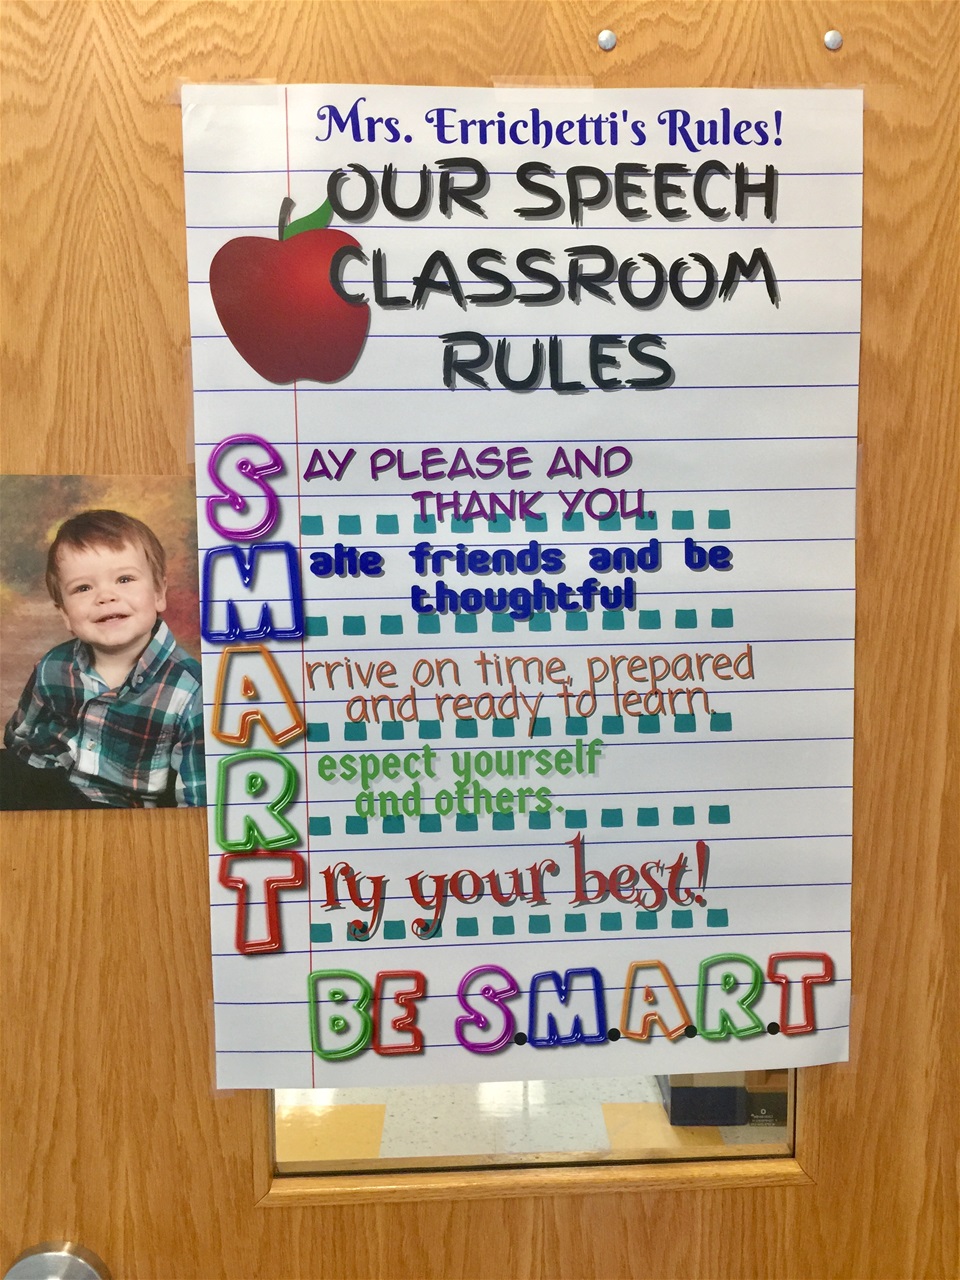 Mrs. Errichetti's Rules!
OUR SPEECH
CLASSROOM
RULES
SAY PLEASE AND
THANK YOU.
Make friends and be
thoughtful
Arrive on time, prepared
and ready to learn.
Respect yourself
and others.
Try your best!
BE S.M.A.R.T